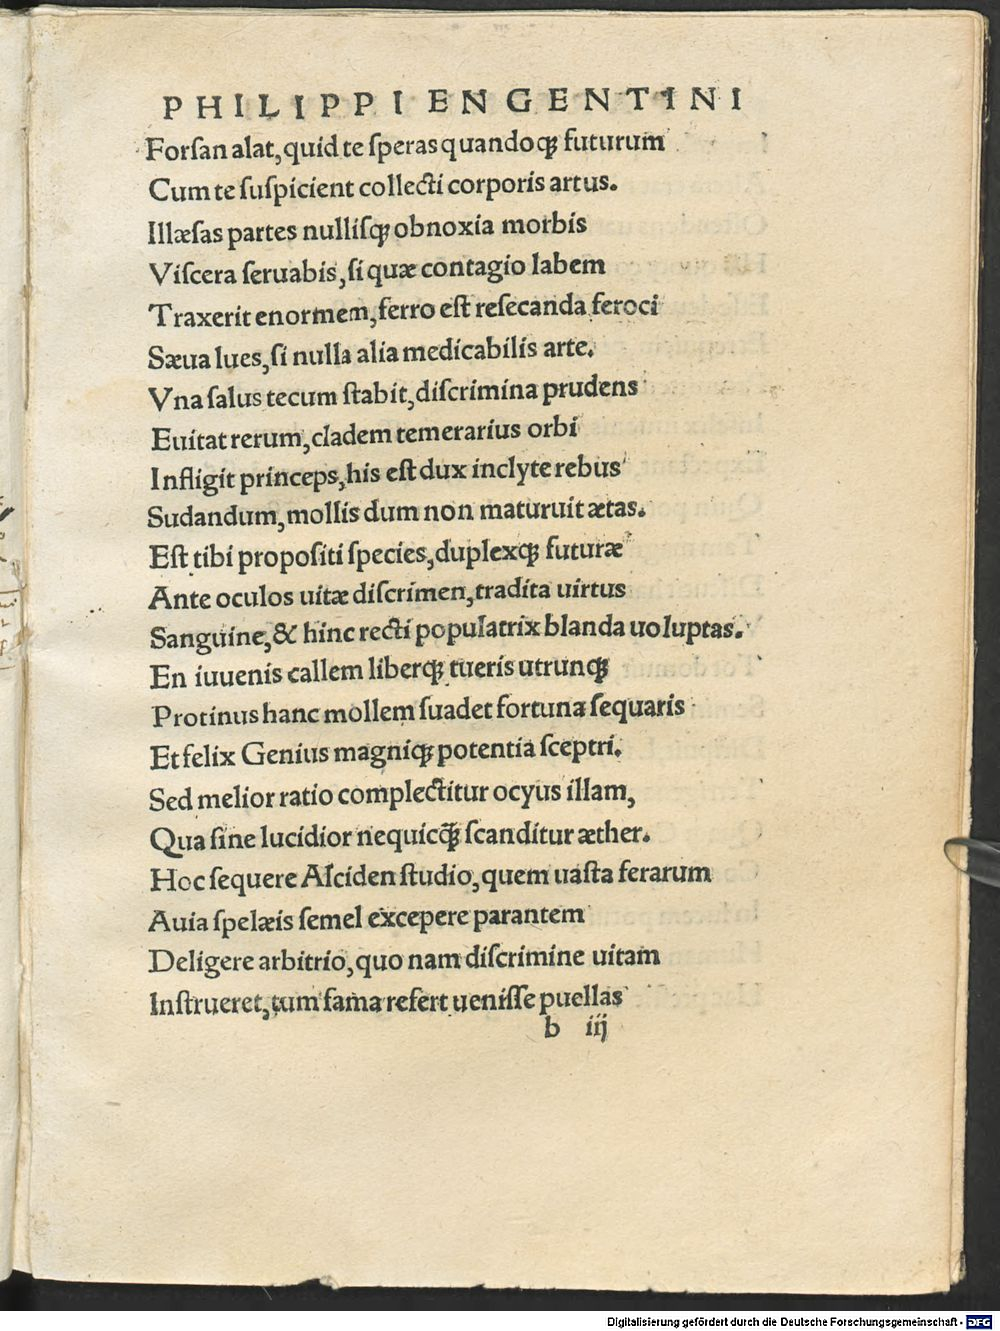 PHILIPPI ENGENTINI
Forſan alat, quid te ſperas quandoqꝫ futurum
Cum te ſuſpicient collecti corporis artus.
Illæſas partes nulliſqꝫ obnoxia morbis
Viſcera ſeruabis, ſi quæ contagio labem
Traxerit enormem, ferro eſt reſecanda feroci
Sæua lues, ſi nulla alia medicabilis arte.
Vna ſalus tecum ſtabit, diſcrimina prudens
Euitat rerum, cladem temerarius orbi
Infligit princeps, his eſt dux inclyte rebus
Sudandum, mollis dum non maturuit ætas.
Eſt tibi propoſiti ſpecies, duplexqꝫ futuræ
Ante oculos uitæ diſcrimen, tradita uirtus
Sanguine, & hinc recti populatrix blanda uoluptas.
En iuuenis callem liberqꝫ tueris utrunqꝫ
Protinus hanc mollem ſuadet fortuna ſequaris
Et felix Genius magniqꝫ potentia ſceptri.
Sed melior ratio complectitur ocyus illam,
Qua ſine lucidior nequicq̃ꝫ ſcanditur æther.
Hoc ſequere Alciden ſtudio, quem uaſta ferarum
Auia ſpelæis ſemel excepere parantem
Deligere arbitrio, quo nam diſcrimine uitam
Inſtrueret, tum fama refert ueniſſe puellas
b iij
Digitalisierung gefördert durch die Deutsche Forschungsgemeinschaft - DFG